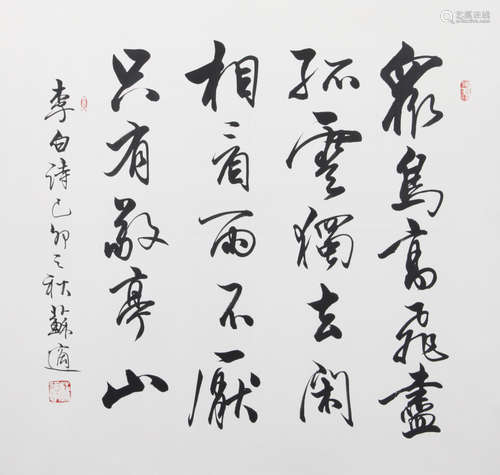 眾鳥高飛盡
孤雲獨去閑
相看兩不厭
只有敬亭山
李白詩己卯之秋蘇適